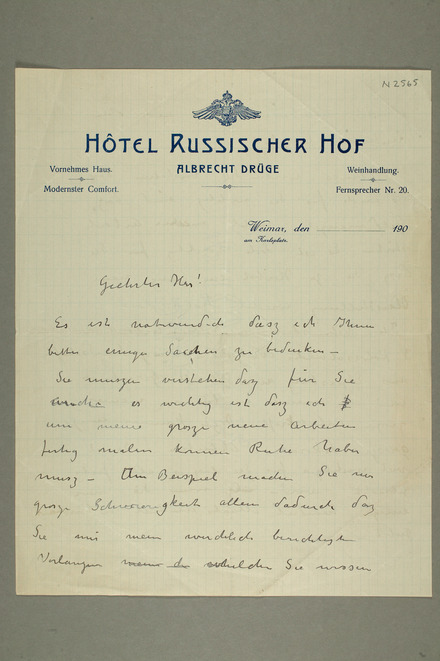 N 2565
HÔTEL RUSSISCHER HOF
ALBRECHT DRÜGE
Vornehmes Haus.
Modernster Comfort.
Weinhandlung.
Fernsprecher Nr. 20.
Weimar, den 190
am Karlsplatz.
Geehrter Herr!
Es ist notwendich dasz ich Ihnen
bitte einige Sachen zu bedenken –
Sie muszen verstehen dasz für Sie
es wichtig ist dasz ich
um meine grosze neue Arbeiten
fertig malen können Ruhe haben
musz – Um Beispiel machen Sie mir
grosze Schwierigkeit allein dadurch dasz
Sie mir mein wirchlich berechtigte
Verlangen Sie missen